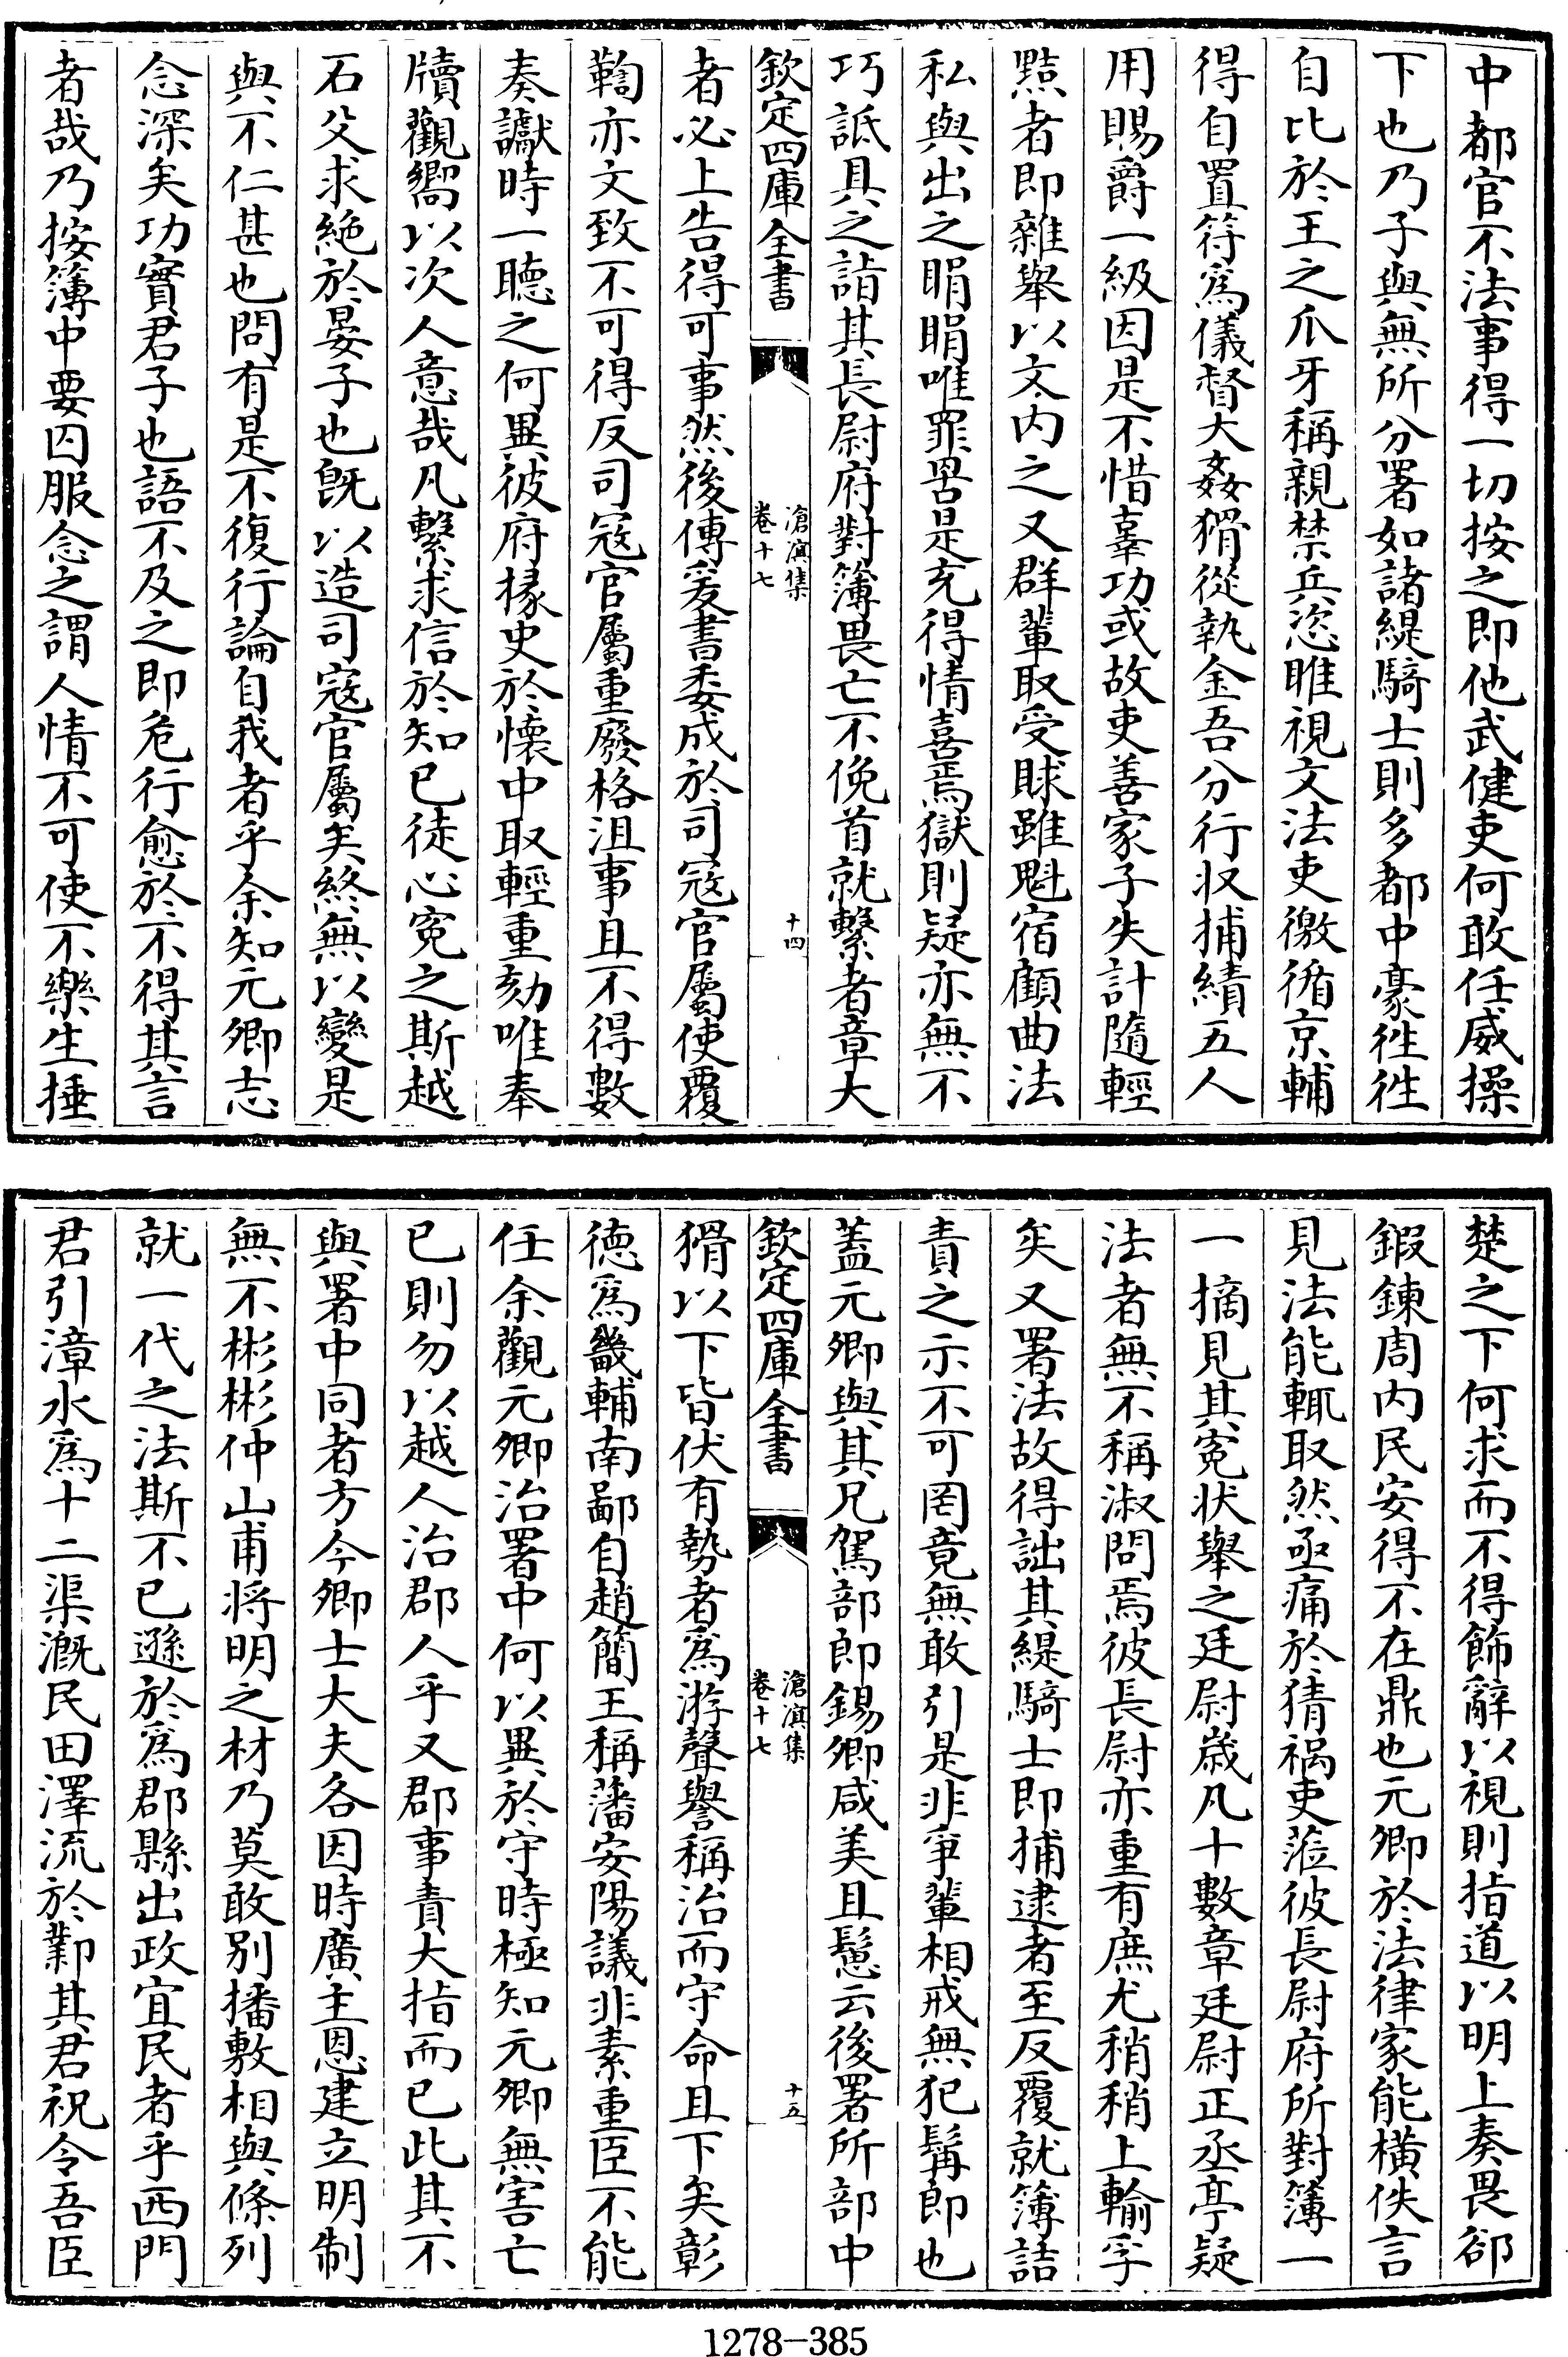 中都官不法事得一切按之即他武健吏何敢任威操
下也乃子與無所分署如諸緹騎士則多都中豪徃徃
自比於王之爪牙稱親禁兵恣睢視文法吏徼循京輔
得自置符爲儀督大姦猾從執金吾分行收捕績五人
用賜爵一級因是不惜辜功或故吏善家子失計隨輕
黠者即雜舉以文内之又群輩取受賕雖魁宿顧曲法
私與出之睊睊唯罪罟是充得情喜焉獄則疑亦無不
巧詆具之詣其長尉府對簿畏亡不俛首就繫者章大
欽定四庫全書
滄溟集
卷十七
十四
者必上告得可事然後傳爰書委成於司寇官屬使覆
鞫亦文致不可得反司寇官屬重廢格沮事且不得數
奏讞時一聽之何異彼府掾史於懷中取輕重劾唯奉
牘觀嚮以次人意哉凡繫求信於知已徒心寃之斯越
石父求絶於晏子也既以造司寇官屬矣終無以變是
與不仁甚也問有是不復行論自我者乎余知元卿志
念深矣功實君子也語不及之即危行愈於不得其言
者哉乃按簿中要囚服念之謂人情不可使不樂生捶
楚之下何求而不得飾辭以視則指道以明上奏畏郤
鍜鍊周内民安得不在鼎也元卿於法律家能橫佚言
見法能輒取然亟痛於猜禍吏蒞彼長尉府所對簿一
一摘見其寃狀舉之廷尉嵗凡十數章廷尉正丞亭疑
法者無不稱淑問焉彼長尉亦重有庶尤稍稍上輸孚
矣又署法故得詘其緹騎士即捕逮者至反覆就簿詰
責之示不可罔竟無敢引是非爭輩相戒無犯髯郎也
蓋元卿與其兄駕部郎錫卿咸美且鬈云後署所部中
欽定四庫全書
滄溟集
卷十七
十五
猾以下皆伏有勢者爲游聲譽稱治而守命且下矣彰
德爲畿輔南鄙自趙簡王稱藩安陽議非素重臣不能
任余觀元卿治署中何以異於守時極知元卿無害亡
已則勿以越人治郡人乎又郡事責大指而已此其不
與署中同者方今卿士大夫各因時廣主恩建立明制
無不彬彬仲山甫將明之材乃莫敢别播敷相與條列
就一代之法斯不已遜於爲郡縣出政宜民者乎西門
君引漳水爲十二渠溉民田澤流於鄴其君祝令吾臣
1278-385